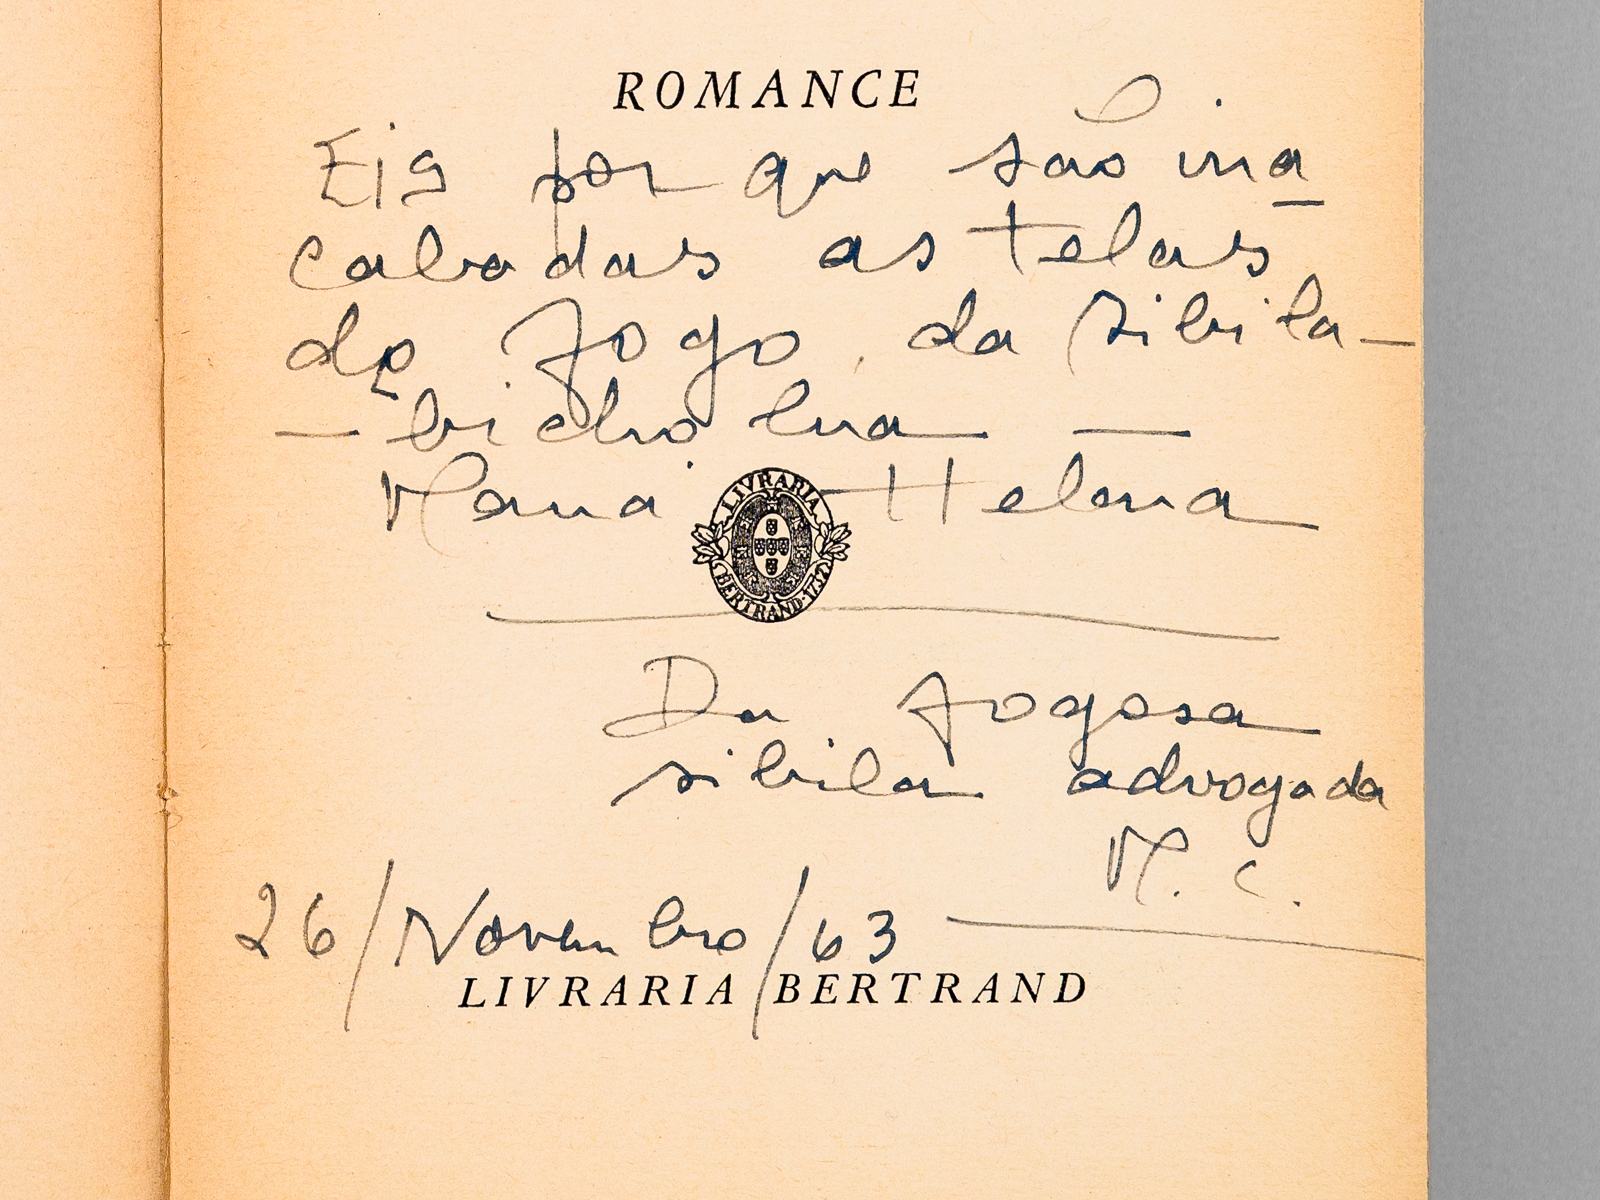 ROMANCE
Eis por que são ina
cabadas as telas
do Jogo da Sibila —
— bicho lua —
Maria Helena
LIVRARIA
BERTRAND · 1732
Da Jogosa
sibila advogada
M. C.
26/Novembro/63
LIVRARIA BERTRAND